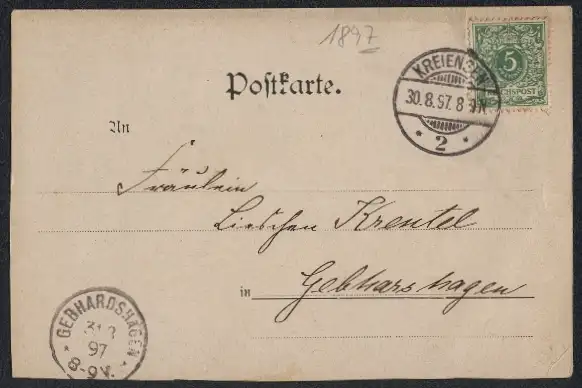 1897
5
REICHSPOST
KREIENSEN
30.8.97. 8-9N.
* 2 *
Postkarte.
An
Fräulein
Lieschen Krentel
in Gebharshagen
GEBHARDSHAGEN
31 8
97
8-9V.